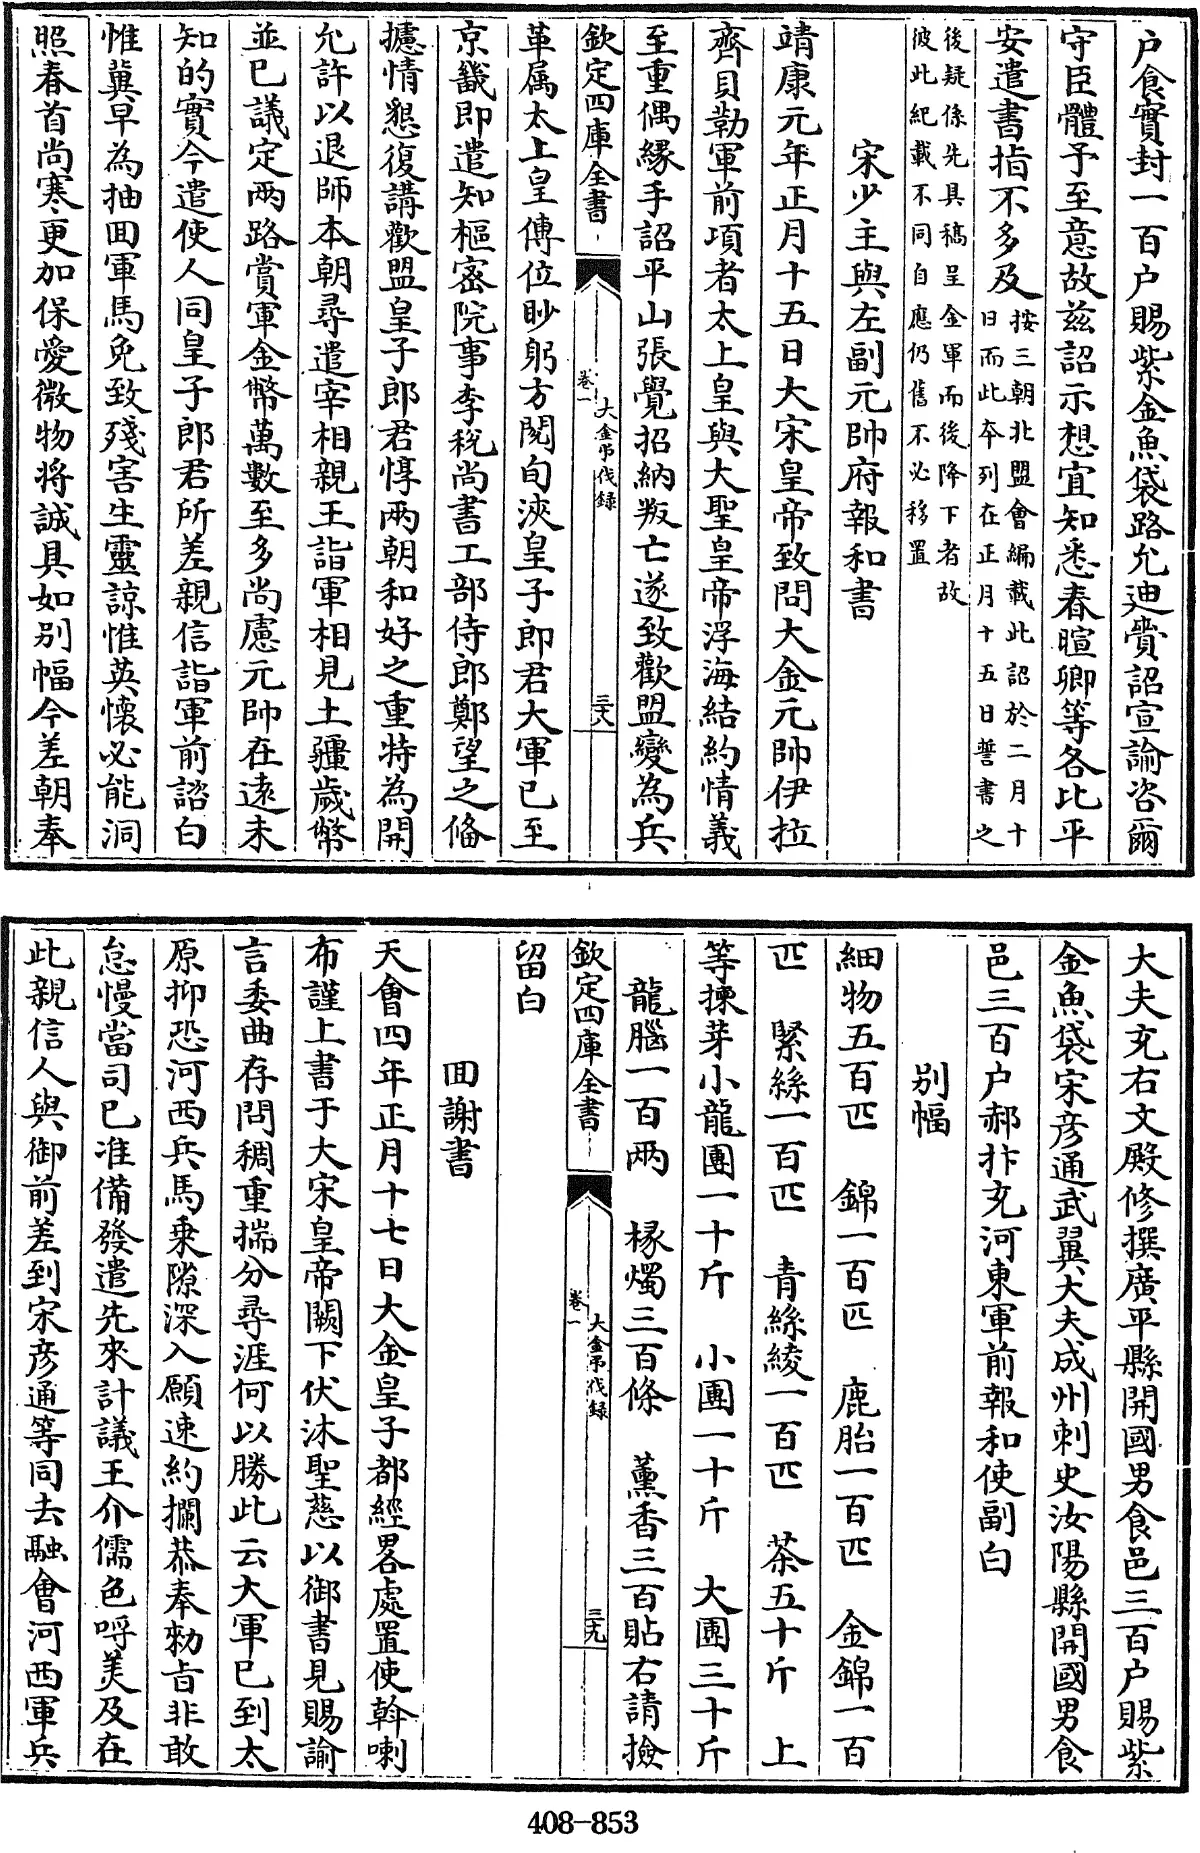 户食實封一百户賜紫金魚袋路允迪賫詔宣諭咨爾
守臣體予至意故兹詔示想宜知悉春暄卿等各比平
安遣書指不多及按三朝北盟會編載此詔於二月十
日而此夲列在正月十五日誓書之
後疑係先具稿呈金軍而後降下者故
彼此紀載不同自應仍舊不必移置
宋少主與左副元帥府報和書
靖康元年正月十五日大宋皇帝致問大金元帥伊拉
齊貝勒軍前項者太上皇與大聖皇帝浮海結約情義
至重偶緣手詔平山張覺招納叛亡遂致歡盟變為兵
欽定四庫全書
大金弔伐録
卷一
三八
革属太上皇傳位眇躬方閱旬浹皇子郎君大軍已至
京畿即遣知樞密院事李梲尚書工部侍郎鄭望之俻
攄情懇復講歡盟皇子郎君惇兩朝和好之重特為開
允許以退師本朝尋遣宰相親王詣軍相見土疆歲幣
並已議定兩路賞軍金幣萬數至多尚慮元帥在遠未
知的實今遣使人同皇子郎君所差親信詣軍前諮白
惟冀早為抽囬軍馬免致殘害生靈諒惟英懷必能洞
照春首尚寒更加保愛微物将誠具如别幅今差朝奉
大夫充右文殿修撰廣平縣開國男食邑三百户賜紫
金魚袋宋彦通武翼大夫成州刺史汝陽縣開國男食
邑三百户郝抃充河東軍前報和使副白
别幅
細物五百匹 錦一百匹 鹿胎一百匹 金錦一百
匹 緊絲一百匹 青絲綾一百匹 茶五十斤 上
等揀芽小龍團一十斤 小團一十斤 大團三十斤
龍腦一百兩 椽燭三百條 薰香三百貼右請撿
欽定四庫全書
大金弔伐録
卷一
三九
留白
囬謝書
天會四年正月十七日大金皇子都經畧處置使斡喇
布謹上書于大宋皇帝闕下伏沐聖慈以御書見賜諭
言委曲存問稠重揣分尋涯何以勝此云大軍已到太
原抑恐河西兵馬乗隙深入願速約攔恭奉勑旨非敢
怠慢當司已准備發遣先來計議王介儒色呼美及在
此親信人與御前差到宋彦通等同去融會河西軍兵
408-853